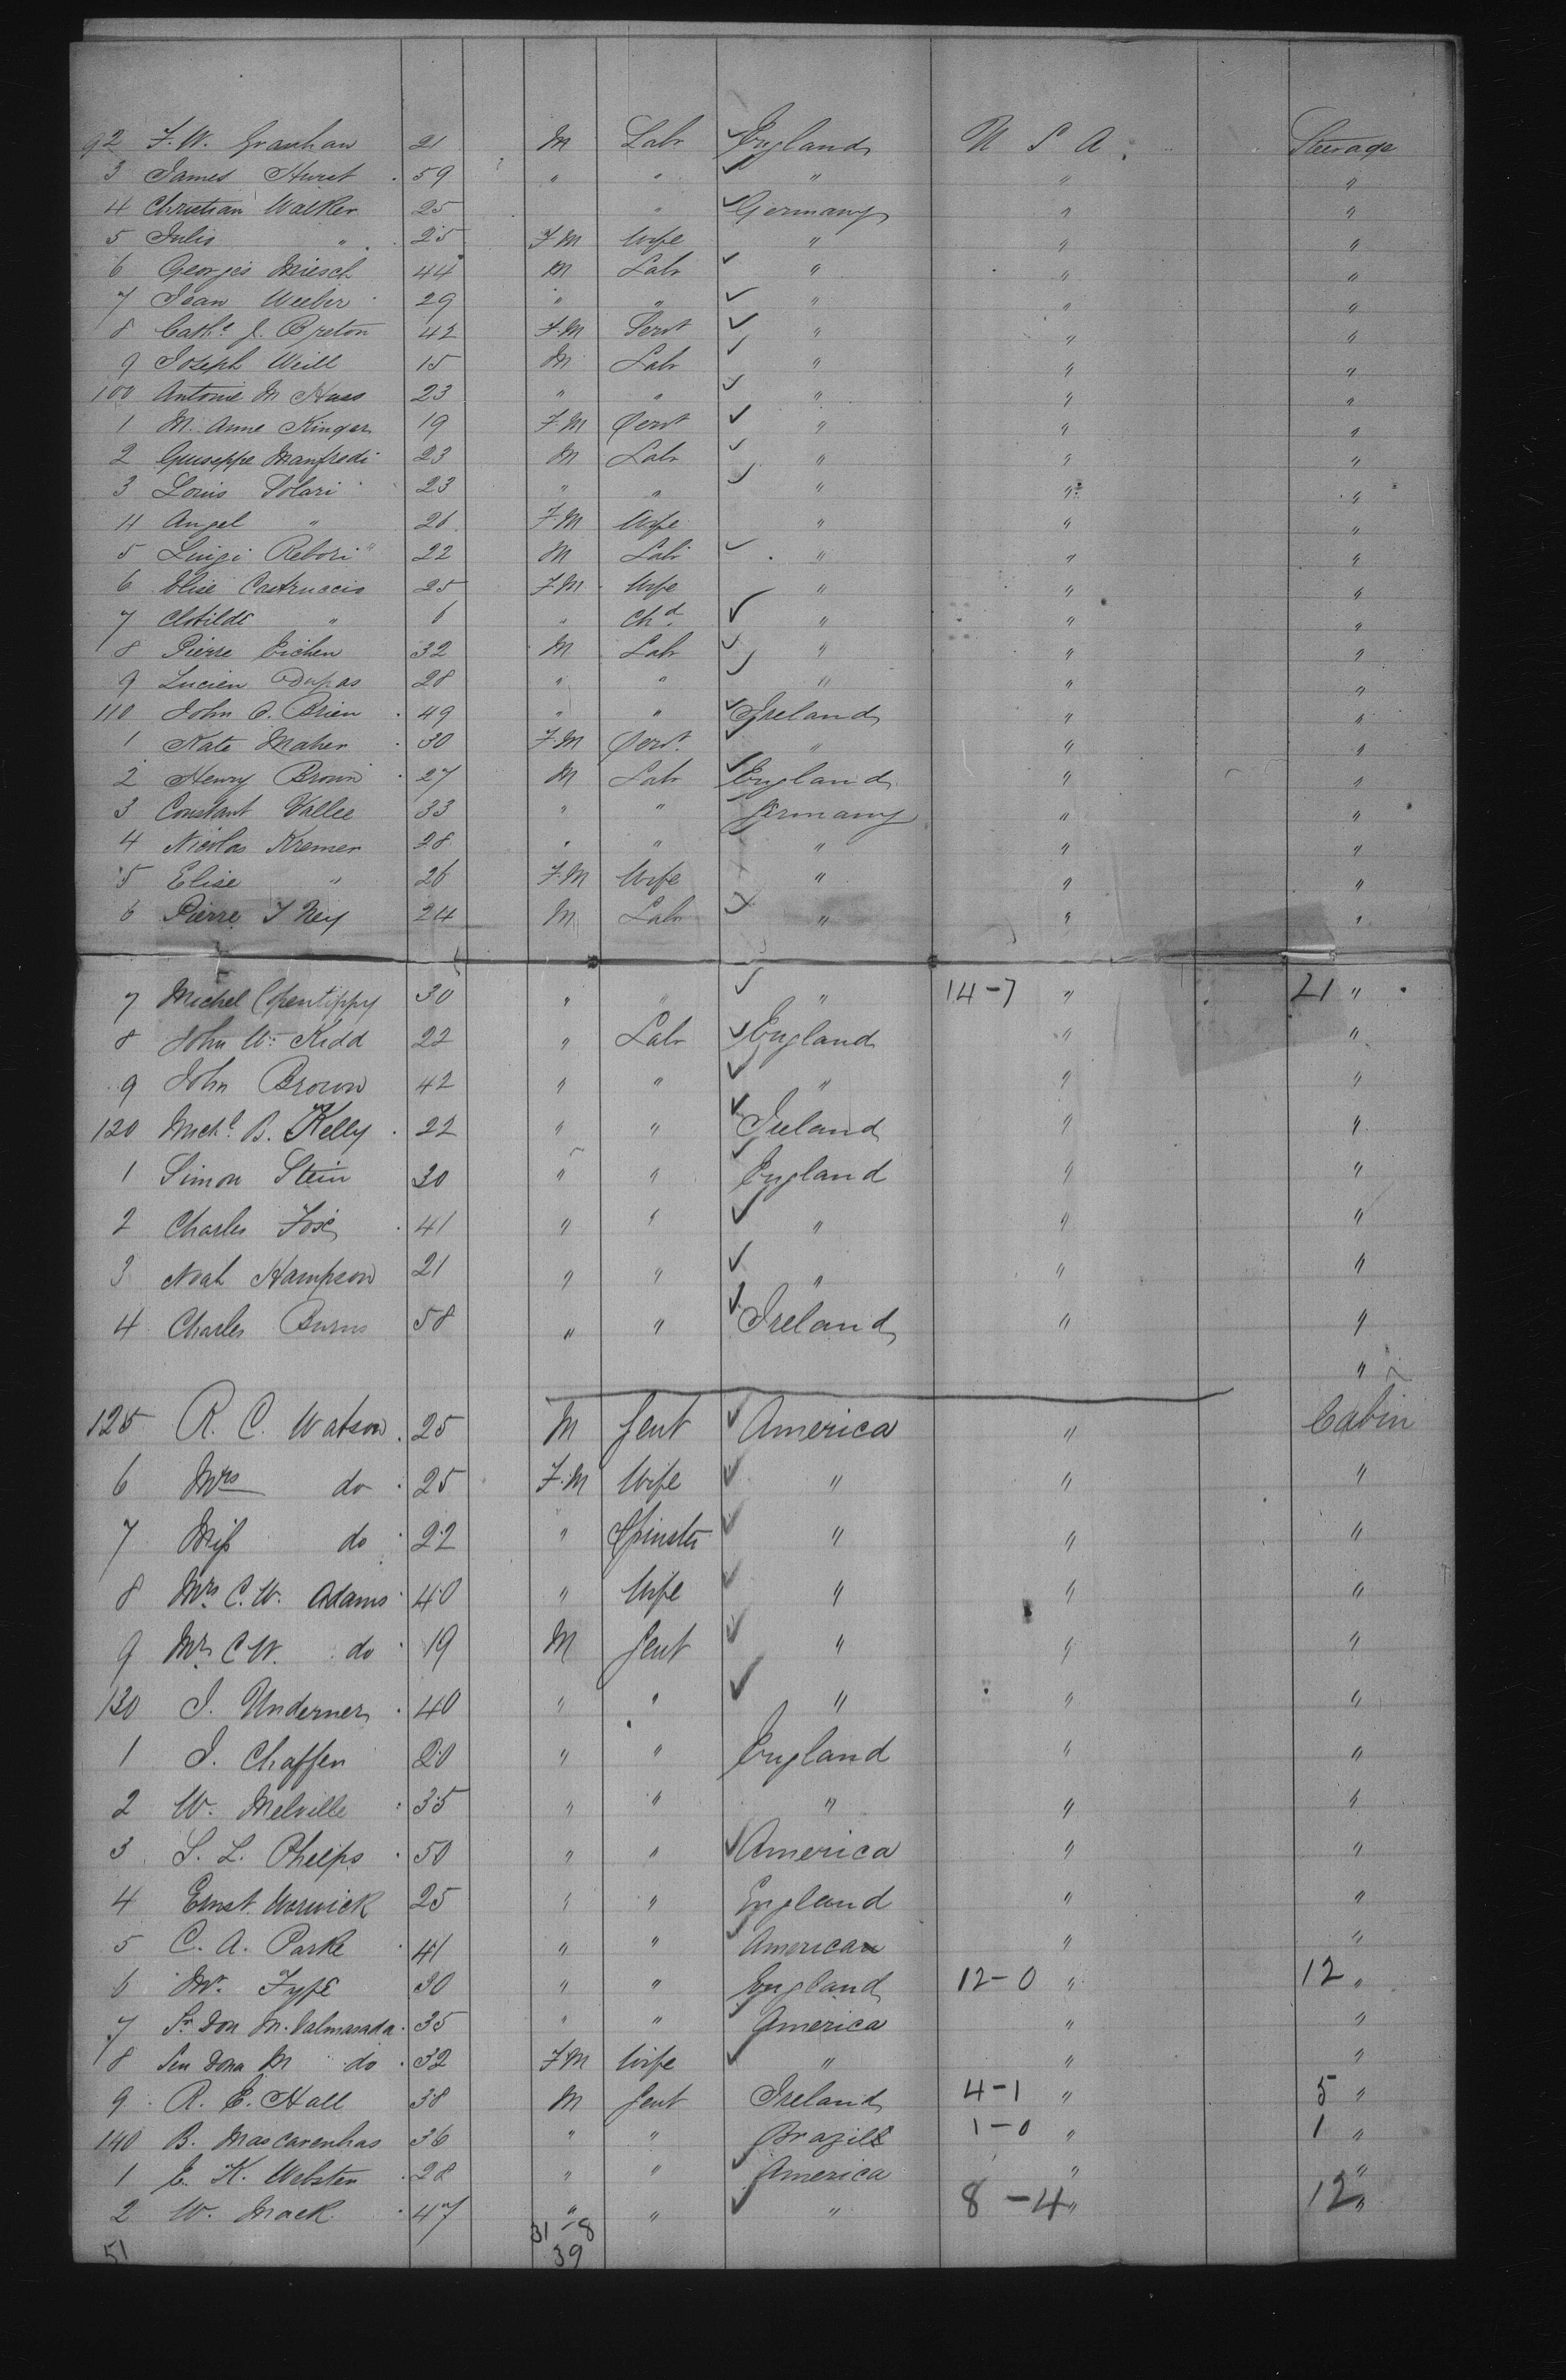 92 F. W. Granhan 21 M Labr England U S A. Steerage
3 James Hurst 59 " " " " "
4 Christian Walker 25 " Germany " "
5 Julis " 25 F.M Wife " " "
6 Georges Miesch 44 M Labr " " "
7 Jean Weeber 29 " " " " "
8 Cathe J. Breton 42 F.M Servt " " "
9 Joseph Weill 15 M Labr " " "
100 Antoine M Haas 23 " " " " "
1 M. Anne Kinger 19 F.M Servt " " "
2 Guiseppe Manfredi 23 M Labr " " "
3 Louis Solari 23 " " " " "
4 Angel " 26 F.M Wife " " "
5 Luigi Rebori 22 M Labr " " "
6 Elise Castruccio 25 F.M Wife " " "
7 Clotilde " 6 " Chd. " " "
8 Pierre Eichen 32 M Labr " " "
9 Lucien Dupas 28 " " " " "
110 John O. Brien 49 " " Ireland " "
1 Kate Maher 30 F.M Servt " " "
2 Henry Brown 27 M Labr England " "
3 Constant Vallee 33 " " Germany " "
4 Nicolas Kremer 28 " " " " "
5 Elise " 26 F.M Wife " " "
6 Pierre J Ney 24 M Labr " " "
7 Michel 30 " " " 14-7 " 21 "
8 John Wm Kidd 22 " Labr England " "
9 John Brown 42 " " " " "
120 Michl. B. Kelly 22 " " Ireland " "
1 Simon Stein 30 " " England " "
2 Charles Fox 41 " " " " "
3 Noah Hampson 21 " " " " "
4 Charles Burns 58 " " Ireland " "
"
125 R. C. Watson 25 M Gent America " Cabin
6 Mrs do 25 F.M Wife " " "
7 Miss do 22 " Spinster " " "
8 Mrs. C. W. Adams 40 " Wife " " "
9 Mr. C W. do 19 M Gent " " "
130 J. Underner 40 " " " " "
1 J. Chaffer 20 " " England " "
2 W. Melville 35 " " " " "
3 S. L. Phelps 50 " " America " "
4 Ernst Warwick 25 " " England " "
5 C. A. Parke 41 " " American " "
6 Mr. Fyfe 30 " " England 12-0 " 12 "
7 Sr Don M. Valmasada 35 " " America " "
8 Sen Dona M do 32 F.M Wife " " "
9 R. E. Hall 38 M Gent Ireland 4-1 " 5 "
140 B. Mascarenhas 36 " " Brazil 1-0 " 1 "
1 E. K. Webster 28 " " America " "
2 W. Mack 47 " " " 8-4 " 12 "
31-8
51 39